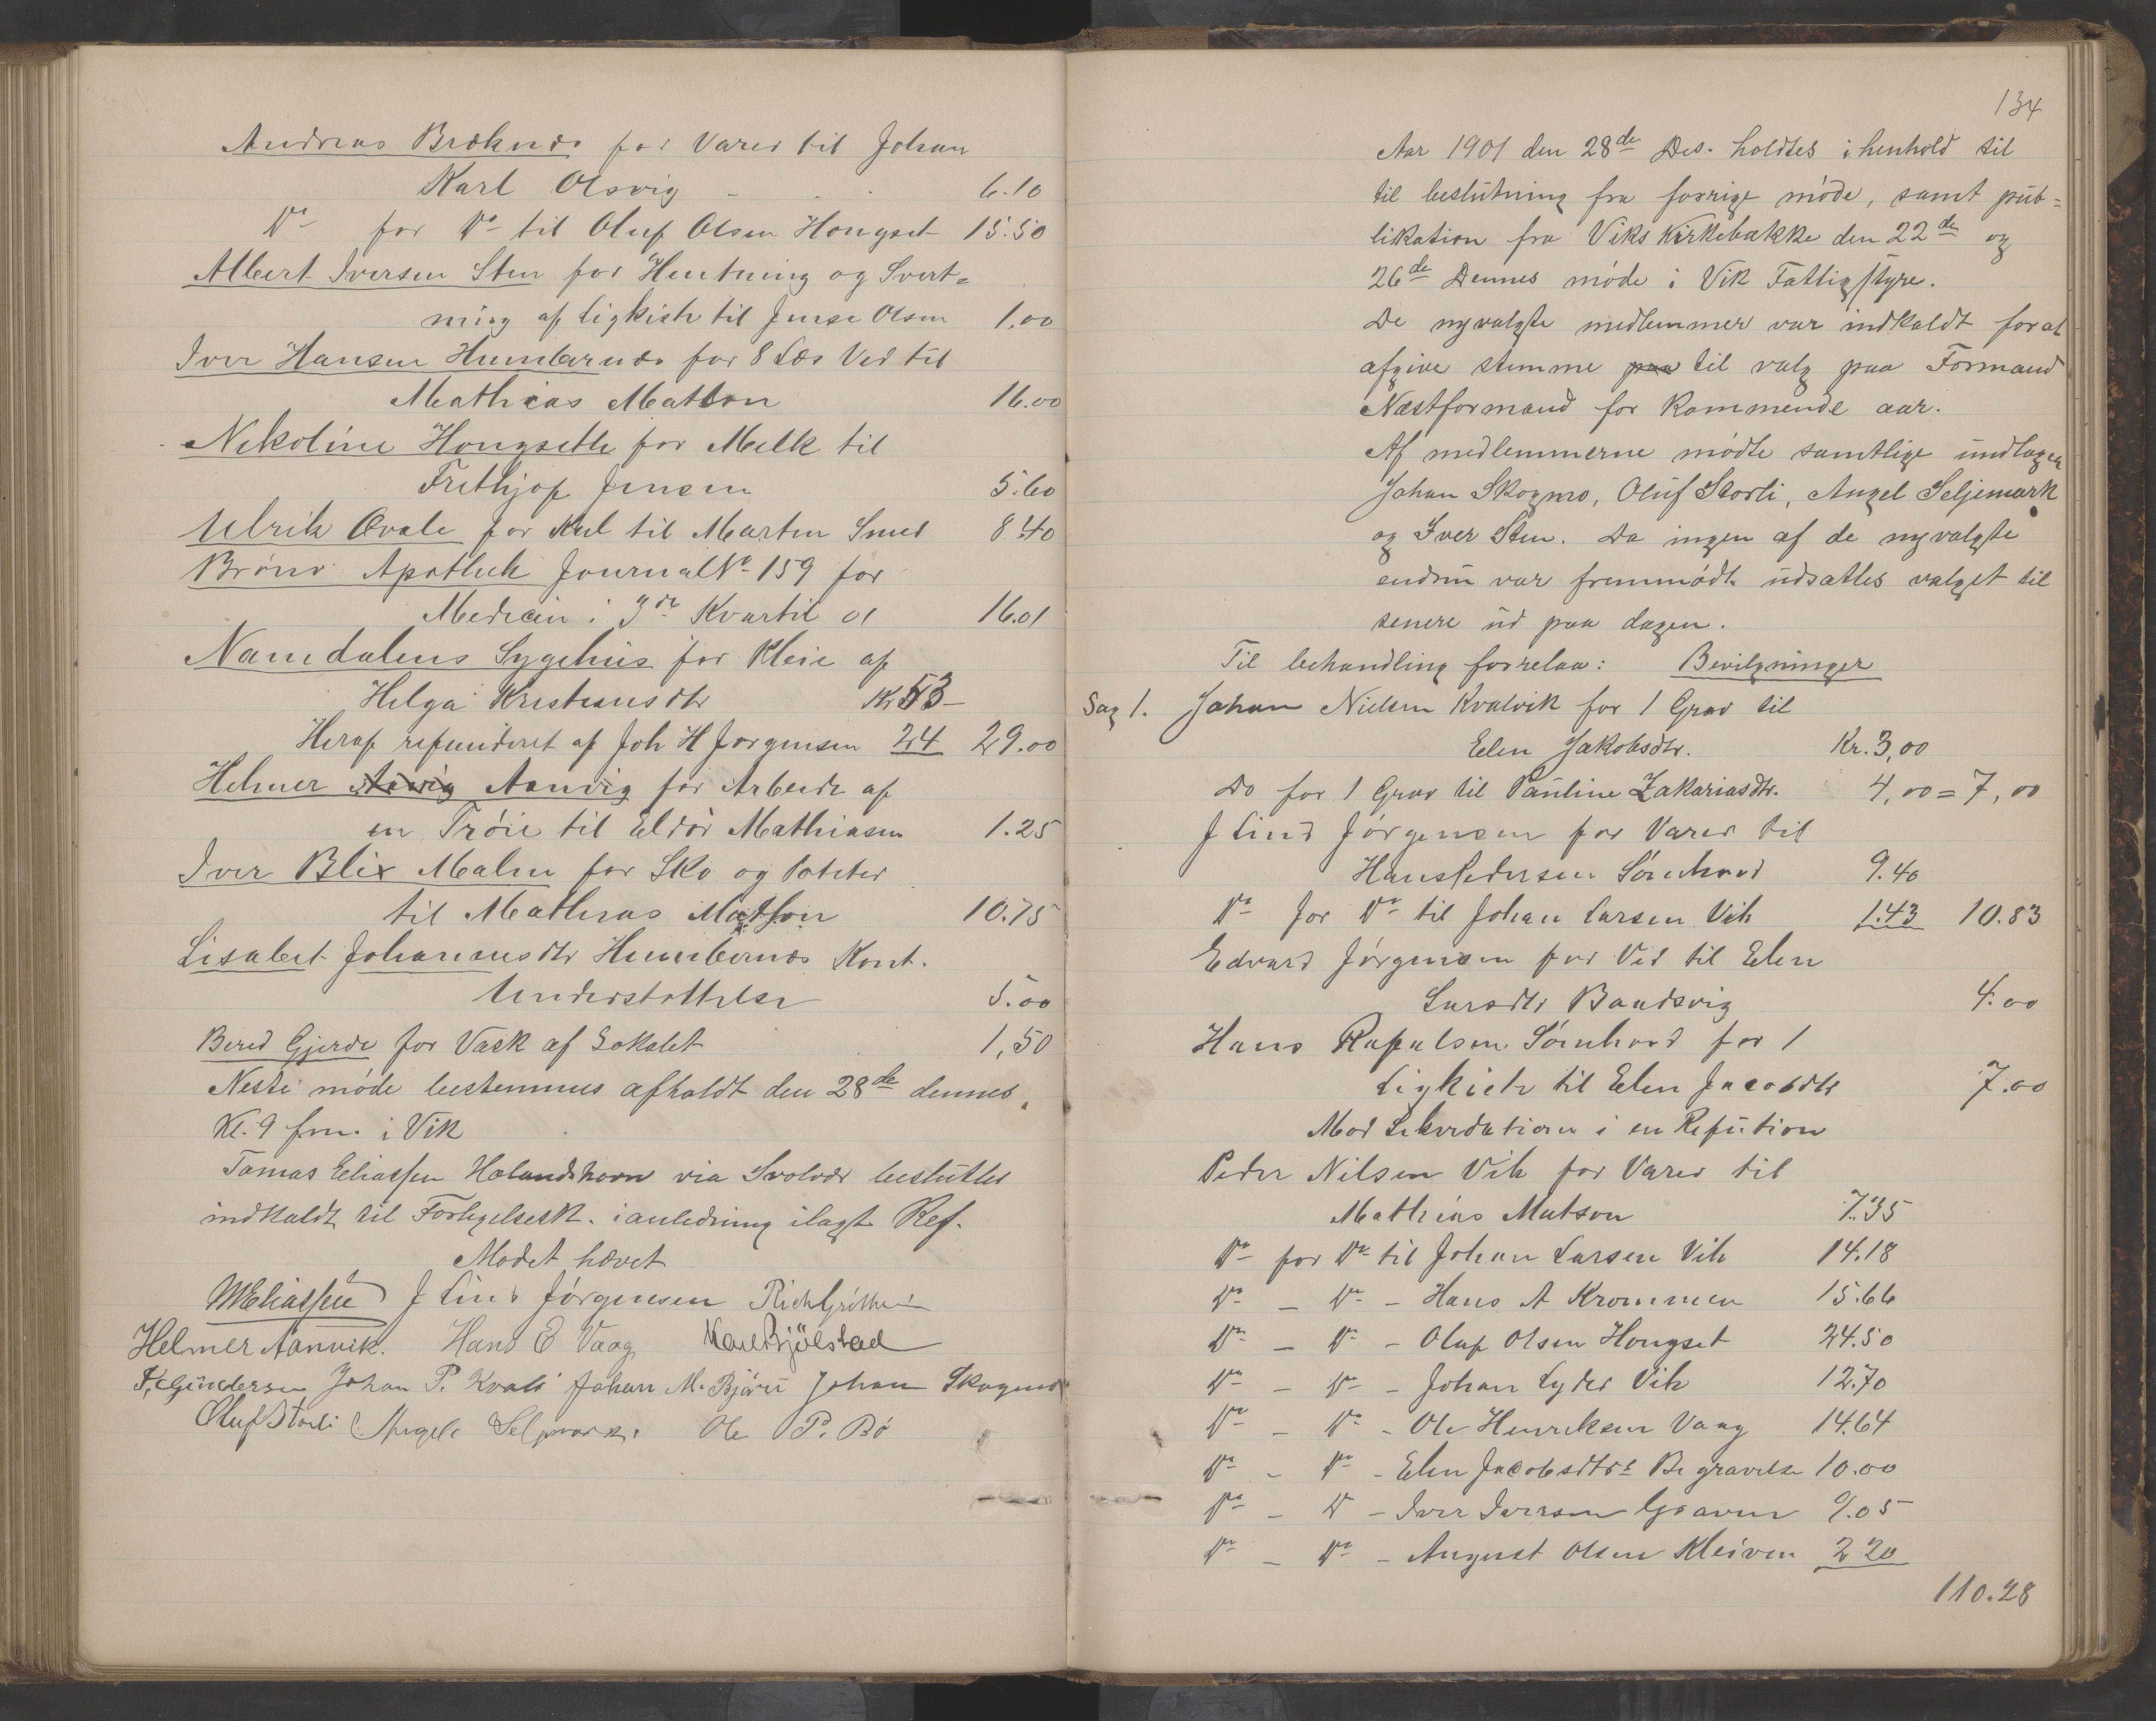 Andreas Bræknæs for Varer til Johan
Karl Olsvig - 6.10
Do for Do til Oluf Olsen Hongset 15.50
Albert Iversen Sten for Hentning og Svert=
ning af Ligkiste til Jense Olsen 1.00
Iver Hansen Humbernæs for 8 Læs Ved til
Mathias Matson 16.00
Nekoline Hongseth for Melk til
Frithjof Jensen 5.60
Ulrik Kvale for Kul til Marten Smed 8.40
Brønø Apothek Journal No 159 for
Medicin i 3de Kvartil 01 16.01
Namdalens Sygehus for Pleie af
Helga Kristensdtr Kr 53 -
Heraf refunderet af Joh H Jørgensen 24 29.00
Helmer Aanvig for Arbeide af
en Trøie til Eldor Mathiasen 1.25
Iver Blix Malm for Sko og Poteter
til Mathias Matson 10.75
Lisabet Johannesdtr Humbernæs Kont.
Understøttelse 5.00
Bered Gjerde for Vask af Lokalet 1,50
Neste møde bestemmes afholdt den 28de dennes
Kl. 9 fm. i Vik
Tomas Eliassen Holandshavn via Svolvær besluttes
indkaldt til Forligelsesk. i anledning ilagt Ref.
Mødet hævet
M Eliassen J Lind Jørgensen Rich Grøtheim
Helmer Aanvik. Hans E Vaag Karl Bjølstad
K. Gundersen Johan P. Kvalø Johan M. Bjørü Johan Skogmo
Oluf Storli Angel Seljemark. Ole P. Bø
134
Aar 1901 den 28de Des. holdtes i henhold til
til beslutning fra forrige møde, samt pub=
likation fra Viks Kirkebakke den 22de og
26de Dennes møde i Vik Fattigstyre.
De nyvalgte medlemmer var indkaldt forat
afgive stemme paa til valg paa Formand
Næstformand for kommende aar.
Af medlemmerne mødte samtlige undtagen
Johan Skogmo, Oluf Storli, Angel Seljemark
og Iver Sten. Da ingen af de nyvalgte
endnu var fremmødt udsattes valget til
senere ud paa dagen.
Til behandling forrelaa: Bevilgninger
Sag 1. Johan Nielsen Kvalvik for 1 Grav til
Elen Jakobsdtr. Kr. 3,00
Do for 1 Grav til Pauline Zakariasdtr. 4,00 = 7,00
J Lind Jørgensen for Varer til
Hans Pedersen Sørnhord 9.40
Do for Do til Johan Larsen Vik 1.43 10.83
Edvard Jørgensen for Ved til Elen
Larsdtr Bandsvig 4.00
Hans Rafalsen Sørnhord for 1
Ligkiste til Elen Jacobsdtr 7.00
Mod Likvidation i en Refution
Peder Nilsen Vik for Varer til
Mathias Matson 7.35
Do for Do til Johan Larsen Vik 14.18
Do - Do - Hans A Krommen 15.66
Do - Do - Oluf Olsen Hongset 24.50
Do - Do - Johan Lyder Vik 12.70
Do - Do - Ole Henriksen Vaag 14.64
Do - Do - Elen Jacobsdtrs Begravelse 10.00
Do - Do - Iver Iversen Graven 9.05
Do - Do - August Olsen Kleiven 2 20
110.28